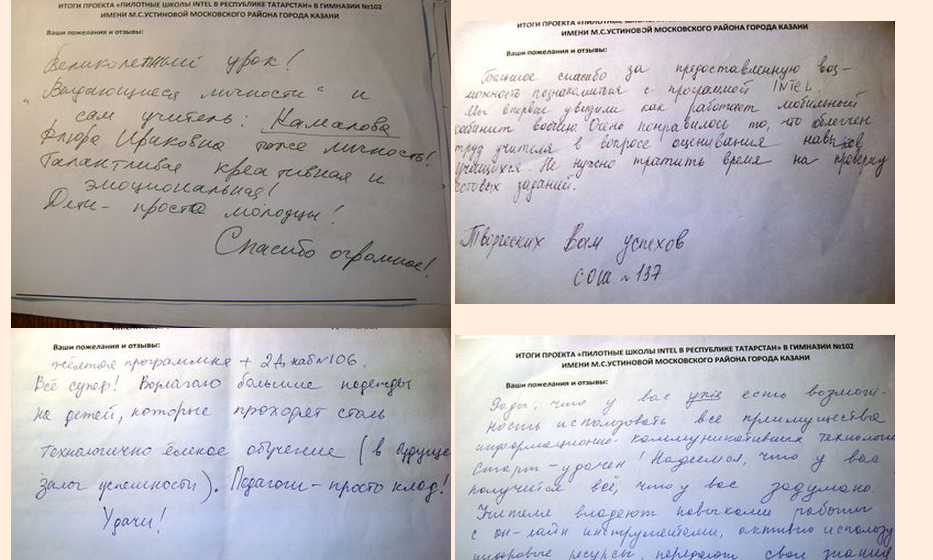 ИТОГИ ПРОЕКТА «ПИЛОТНЫЕ ШКОЛЫ INTEL В РЕСПУБЛИКЕ ТАТАРСТАН» В ГИМНАЗИИ №102
ИМЕНИ М.С.УСТИНОВОЙ МОСКОВСКОГО РАЙОНА ГОРОДА КАЗАНИ
Ваши пожелания и отзывы:
Великолепный урок!
"Выдающиеся личности" и
сам учитель: Камалова
Флюра Ираковна тоже личность!
Талантливая креативная и
эмоциональная!
Дети - просто молодцы!
Спасибо огромное!
ИТОГИ ПРОЕКТА «ПИЛОТНЫЕ ШКОЛЫ INTEL В РЕСПУБЛИКЕ ТАТАРСТАН»
ИМЕНИ М.С.УСТИНОВОЙ МОСКОВСКОГО РАЙОНА ГОРОДА КАЗАНИ
Ваши пожелания и отзывы:
Большое спасибо за предоставленную воз-
можность познакомиться с программой INTEL.
Мы впервые увидели как работает мобильный
кабинет воочию Очень понравилось то, что облегчен
труд учителя в вопросе оценивания навыков
учащихся. Не нужно тратить время на проверку
тестовых заданий.
Творческих Вам успехов
СОШ №137
Ваши пожелания и отзывы:
жёлтая программка + 2Д каб№106.
Всё супер! Возлагаю большие надежды
на детей, которые проходят столь
технологично ёмкое обучение (в будущем
залог успешности). Педагоги - просто клад!
Удачи!
ИТОГИ ПРОЕКТА «ПИЛОТНЫЕ ШКОЛЫ INTEL В РЕСПУБЛИКЕ ТАТАРСТАН» В ГИМНАЗИИ №102
ИМЕНИ М.С.УСТИНОВОЙ МОСКОВСКОГО РАЙОНА ГОРОДА КАЗАНИ
Ваши пожелания и отзывы:
Рады, что у вас уже есть возмож-
ность использовать все преимущества
информационно-коммуникативных технологи
Старт - удачен! Надеемся, что у вас
получится всё, что у вас задумано.
Учителя владеют навыками работы
с он-лайн инструментами, активно использу
цифровые ресурсы, передают свои знания